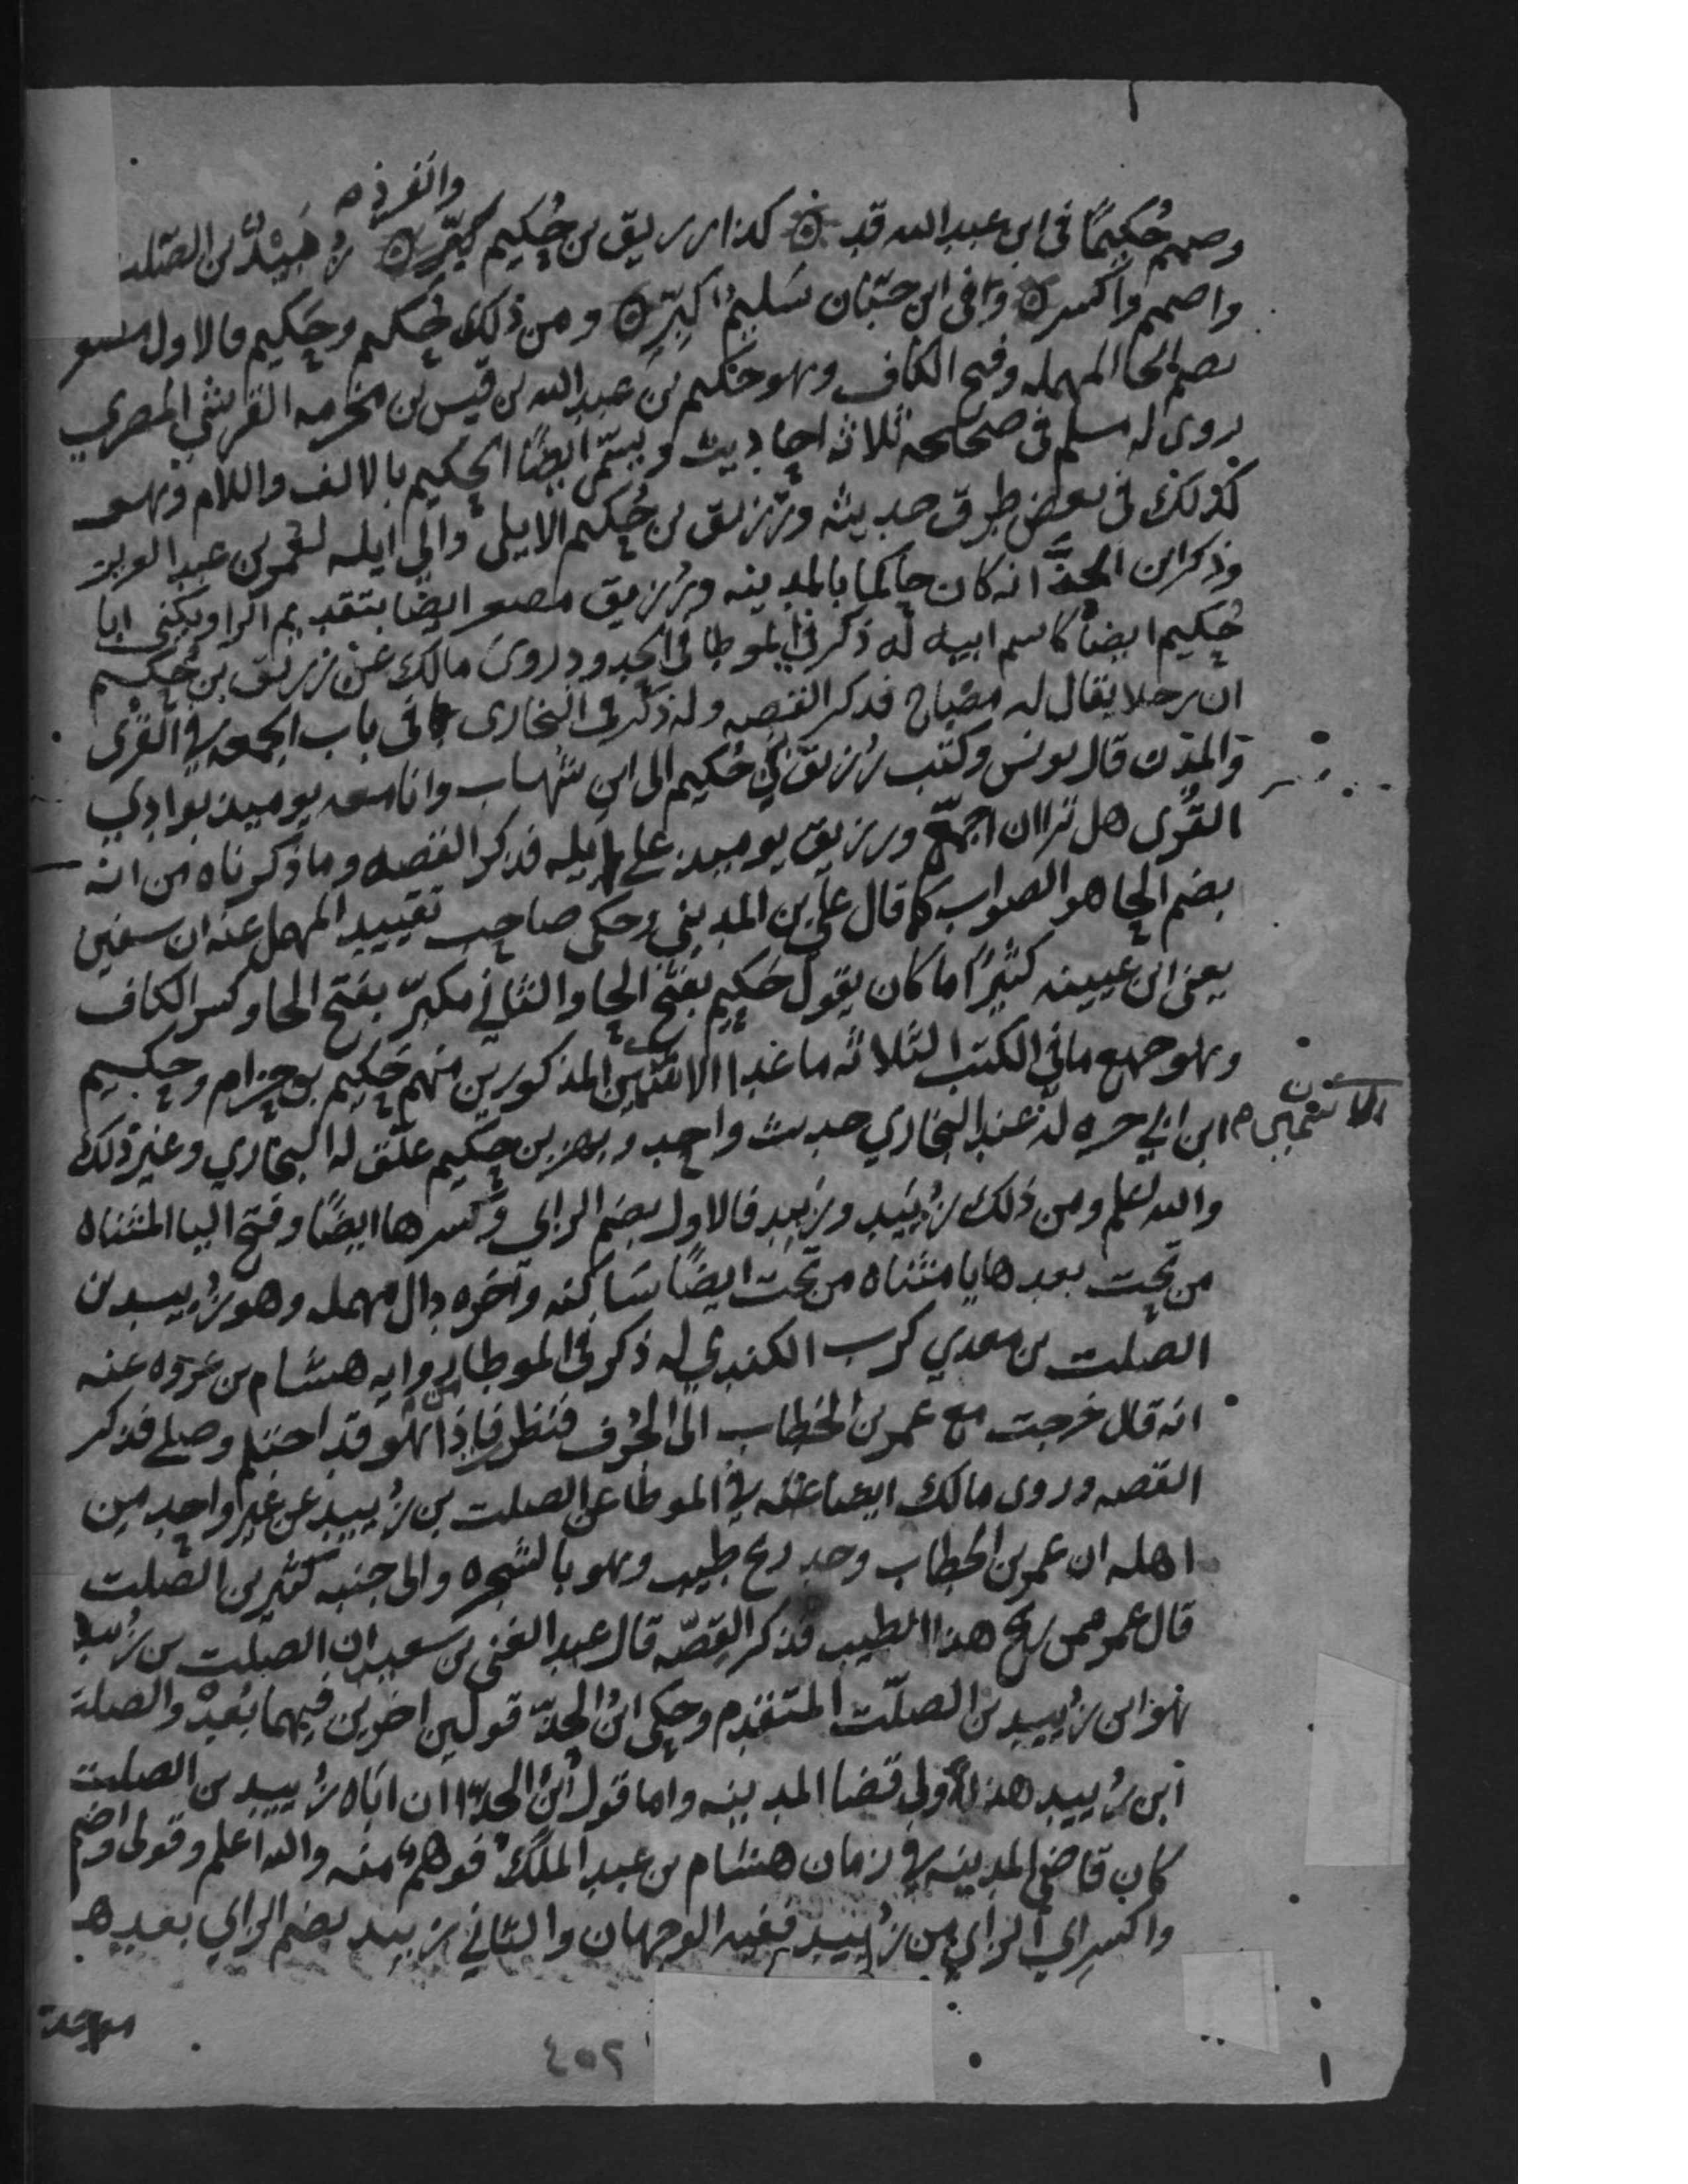 وانفرد
وضم حُكيمًا في ابن عبد الله قد ۞ كذا رزيق بن حُكيم ۞ زُبَيْدٌ بن الصلت
واضمم واكسر ۞ وفي ابن حبان سَليم كبّر ۞ ومن ذلك حُكيم وحَكيم فالاول مصغر
بضم الحا المهمله وفتح الكاف وهو حكيم بن عبد الله بن قيس بن مخرمه القرشي المصري
روى له مسلم في صحيحه ثلاثه احاديث ويسمى ايضًا الحكيم بالالف واللام وهو
كذلك في بعض طرق حديثه ورزيق بن حُكيم الايلي والي ايله لعمر بن عبد العزيز
وذكر ابن الحذّا انه كان حاكما بالمدينه ورُزيق مصغر ايضا بتقديم الرا ويكنى ابا
حُكيم ايضًا كاسم ابيه له ذكر في الموطا في الحدود روى مالك عن زريق بن حُكيم
ان رجلا يقال له مصباح فذكر القصه وله ذكر في البخاري في باب الجمعه في القرى
والمدن قال يونس وكتب رُزيق بن حُكيم الى ابن شهاب وانا معه يوميذ بوادي
القُرى هل ترا ان اجمّع ورزيق يوميذ على ايله فذكر القصه وما ذكرناه من انه
بضم الحا هو الصواب كما قال علي بن المديني وحكى صاحب تقييد المهمل عنه ان سفين
يعني ابن عيينه كثيرًا ما كان يقول حَكيم بفتح الحا والثاني مكبّر بفتح الحا وكسر الكاف
وهو جميع ما في الكتب الثلاثه ما عدا الاثنين المذكورين منهم حَكيم بن حِزام وحكيم
ابن ابي حره له عند البخاري حديث واحد وبهز بن حكيم علّق له البخاري وغير ذلك
والله اعلم ومن ذلك زُيَيد وزُبيد فالاول بضم الزاي وكسرها ايضًا وفتح اليا المثناه
من تحت بعدها يا مثناه من تحت ايضًا ساكنه وآخره دال مهمله وهو زُييد بن
الصلت بن معدي كرب الكندي له ذكر في الموطا من روايه هشام بن عروه عنه
انه قال خرجت مع عمر بن الخطاب الى الجُرف فنظر فاذا هو قد احتلم وصلى فذكر
القصه وروى مالك ايضا عنه في الموطا عن الصلت بن زُييد عن غير واحد من
اهله ان عمر بن الخطاب وجد ريح طيب وهو بالشجره والى جنبه كثير بن الصلت
قال عمر ممن ريح هذا الطيب فذكر القصّه قال عبد الغني بن سعيد ان الصلت بن زُييد
هو ابن زُييد بن الصلّت المتقدم وحكى ابنُ الحذّا قولين اخرين فيهما بُعدٌ والصلت
ابن زُييد هذا ولي قضا المدينه واما قول ابن الحذّا ان اباه زُييد بن الصلت
كان قاضي المدينه في زمان هشام بن عبد الملك فوهم منه والله اعلم وقولي واضمم
واكسر اي الزاي من زُييد ففيه الوجهان والثاني زبيد بضم الزاي بعدها
موحده
٤٥٢